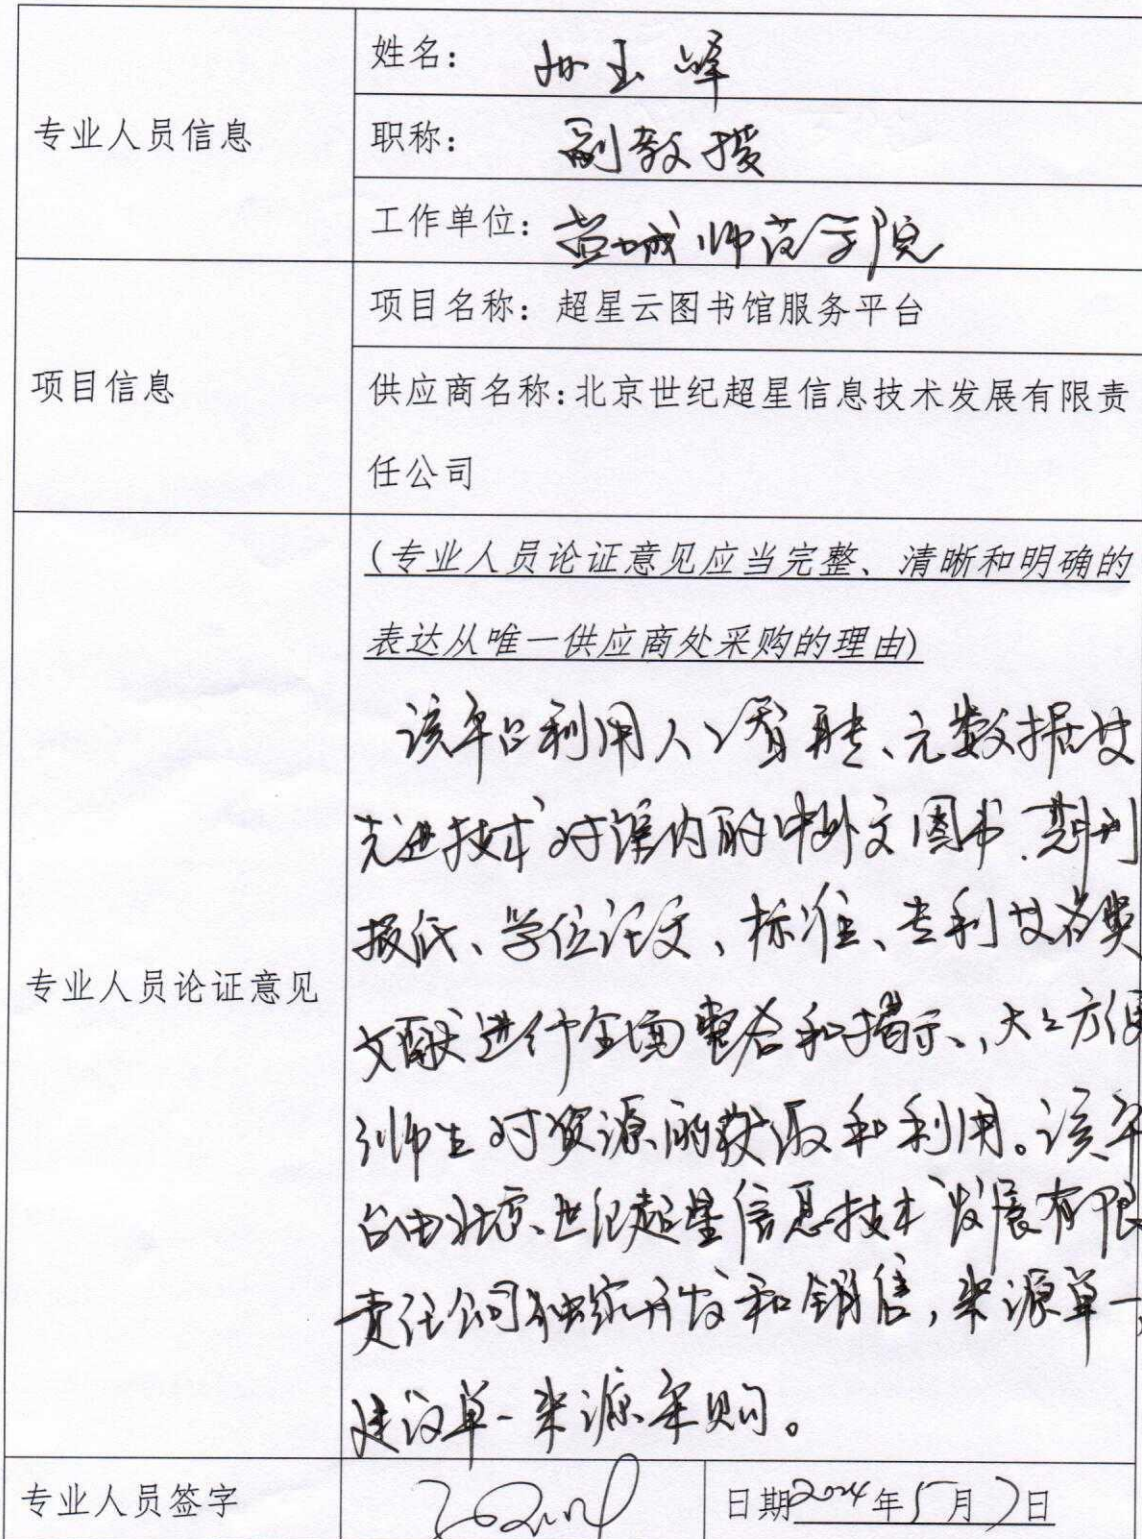 专业人员信息
姓名: 孙玉峰
职称: 副教授
工作单位: 盐城师范学院
项目信息
项目名称: 超星云图书馆服务平台
供应商名称:北京世纪超星信息技术发展有限责
任公司
专业人员论证意见
(专业人员论证意见应当完整、清晰和明确的
表达从唯一供应商处采购的理由)
该平台利用人工智能、元数据等
先进技术对馆内的中外文图书、期刊
报纸、学位论文、标准、专利等各类
文献进行全面整合和揭示,大大方便
师生对资源的获取和利用。该平
台由北京世纪超星信息技术发展有限
责任公司独家开发和销售,来源单一,
建议单一来源采购。
专业人员签字
日期2024年5月7日